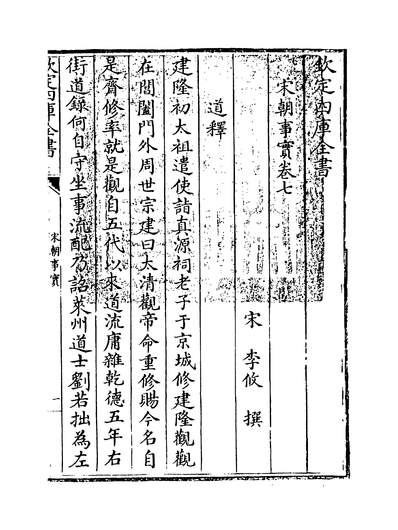 欽定四庫全書
宋朝事實卷七
宋 李攸 撰
道釋
建隆初太祖遣使詣真源祠老子于京城修建隆觀觀
在閶闔門外周世宗建曰太清觀帝命重修賜今名自
是齋修率就是觀自五代以來道流庸雜乾德五年右
街道錄何自守坐事流配乃詔萊州道士劉若拙為左
欽定四庫全書
宋朝事實
一